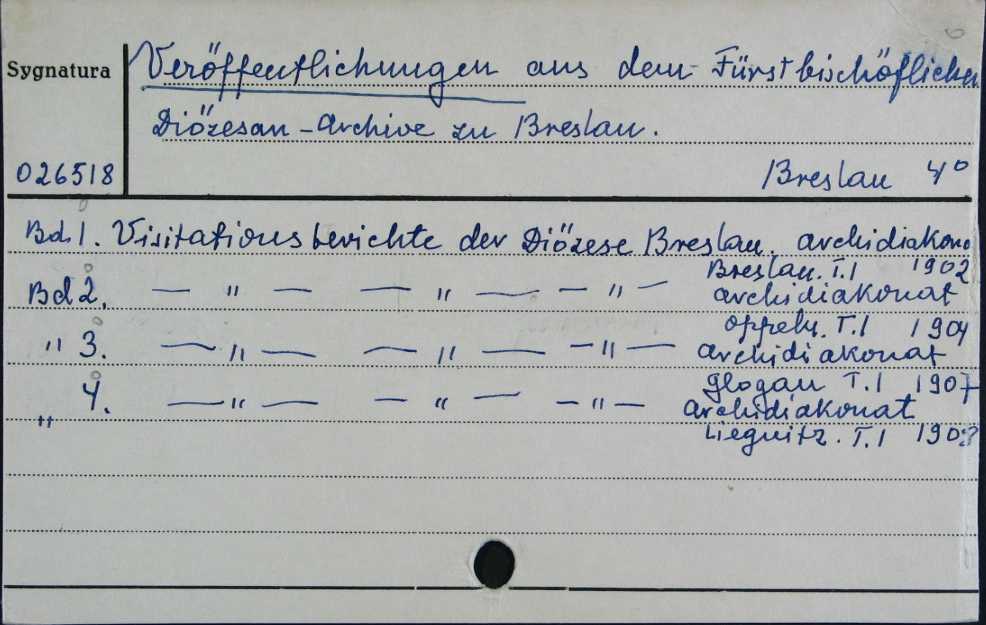 Sygnatura
Veröffentlichungen aus dem Fürstbischöflichen
Diözesan-Archive zu Breslau.
026518
Breslau 4°
Bd. 1. Visitationsberichte der Diözese Breslau. Archidiakona
Breslau. T.1 1902
Bd 2. — " — — " — — " — Archidiakonat
Oppeln. T.1 1904
" 3. — " — — " — — " — Archidiakonat
Glogau T.1 1907
" 4. — " — — " — — " — Archidiakonat
Liegnitz. T.1